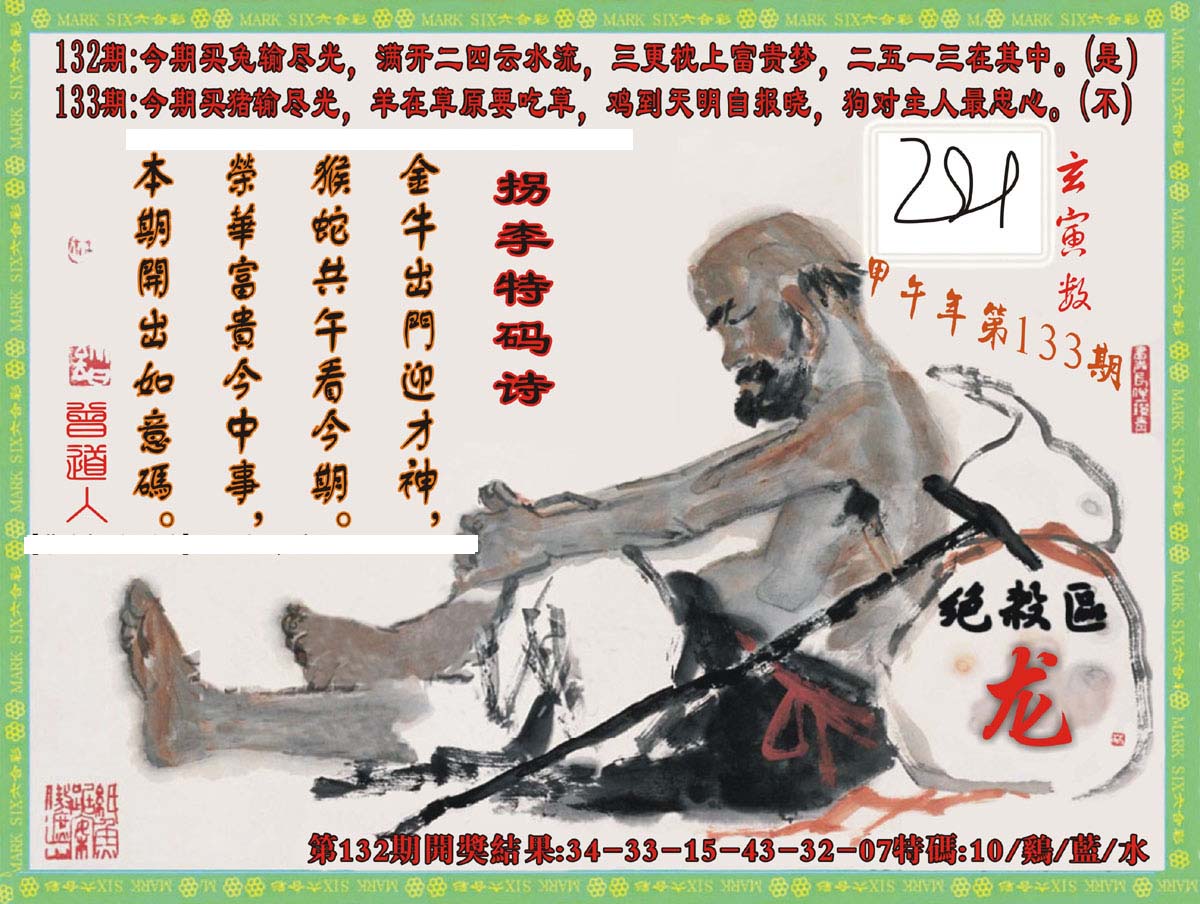 MARK SIX六合彩
132期:今期买兔输尽光，满开二四云水流，三更枕上富贵梦，二五一三在其中。(是)
133期:今期买猪输尽光，羊在草原要吃草，鸡到天明自报晓，狗对主人最忠心。(不)
玄寅数
甲午年第133期
拐李特码诗
金牛出門迎才神，
猴蛇共午看今期。
榮華富貴今中事，
本期開出如意碼。
曾道人
绝殺區
龙
第132期開獎結果:34-33-15-43-32-07特碼:10/鷄/藍/水